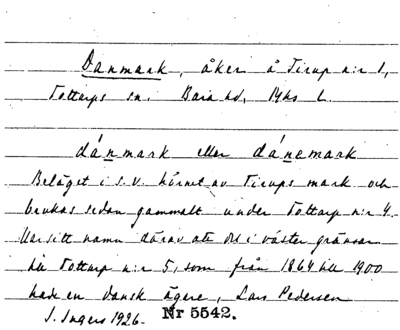 Danmark, åker å Tirup n:r 1,
Tottarps sn. Bara hd, Mhs l.
dánmark eller dánemark
Beläget i s.v. hörnet av Tirups mark och
brukas sedan gammalt under Tottarp n:r 4.
Har sitt namn därav att det i väster gränsar
till Tottarp n:r 5, som från 1864 till 1900
hade en dansk ägare, Lars Pedersen
I. Ingers 1926. Nr 5542.